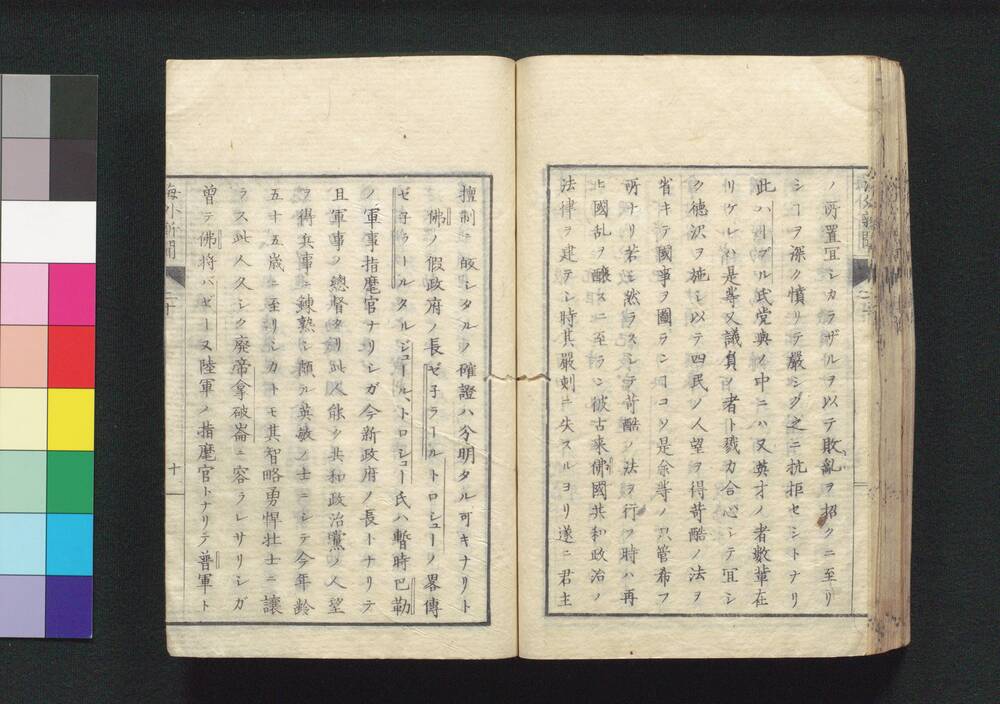 ノ所置宜シカラザルヲ以テ敗亂ヲ招クニ至リ
シヿヲ深ク憤リテ嚴シク之ニ抗拒セシトナリ
此ハーブル氏党與ノ中ニハ又英才ノ者数輩在
リケレハ是等又議員ノ者ト戮力合心シテ宜シ
ク徳沢ヲ施シ以テ四民ノ人望ヲ得苛酷ノ法ヲ
省キテ國事ヲ圖ランヿコソ是余等ノ只管希フ
所ナリ若シ然ラスシテ苛酷ノ法ヲ行フ時ハ再
ヒ國乱ヲ醸スニ至ラン彼古来佛國共和政治ノ
法律ヲ建テシ時其嚴刻ニ失スルヨリ遂ニ君主
擅制ニ皈シタルノ確證ハ分明タル可キナリト
佛ノ假政府ノ長ゼ子ラールトロシューノ畧傳
ゼ子ラールタルジュール、トロシュー氏ハ暫時巴勒
ノ軍事指麾官ナリシガ今新政府ノ長トナリテ
且軍事ノ總督タリ此人能ク共和政治黨ノ人望
ヲ得兵事ニ錬熟シ頗ル英敏ノ士ニシテ今年齢
五十五歳ニ至リシカトモ其智略勇悍壮士ニ讓
ラス此人久シク廃帝拿破崙ニ容ラレサリシガ
曽テ佛將バゼーヌ陸軍ノ指麾官トナリテ普軍ト
海外新聞
二十
十